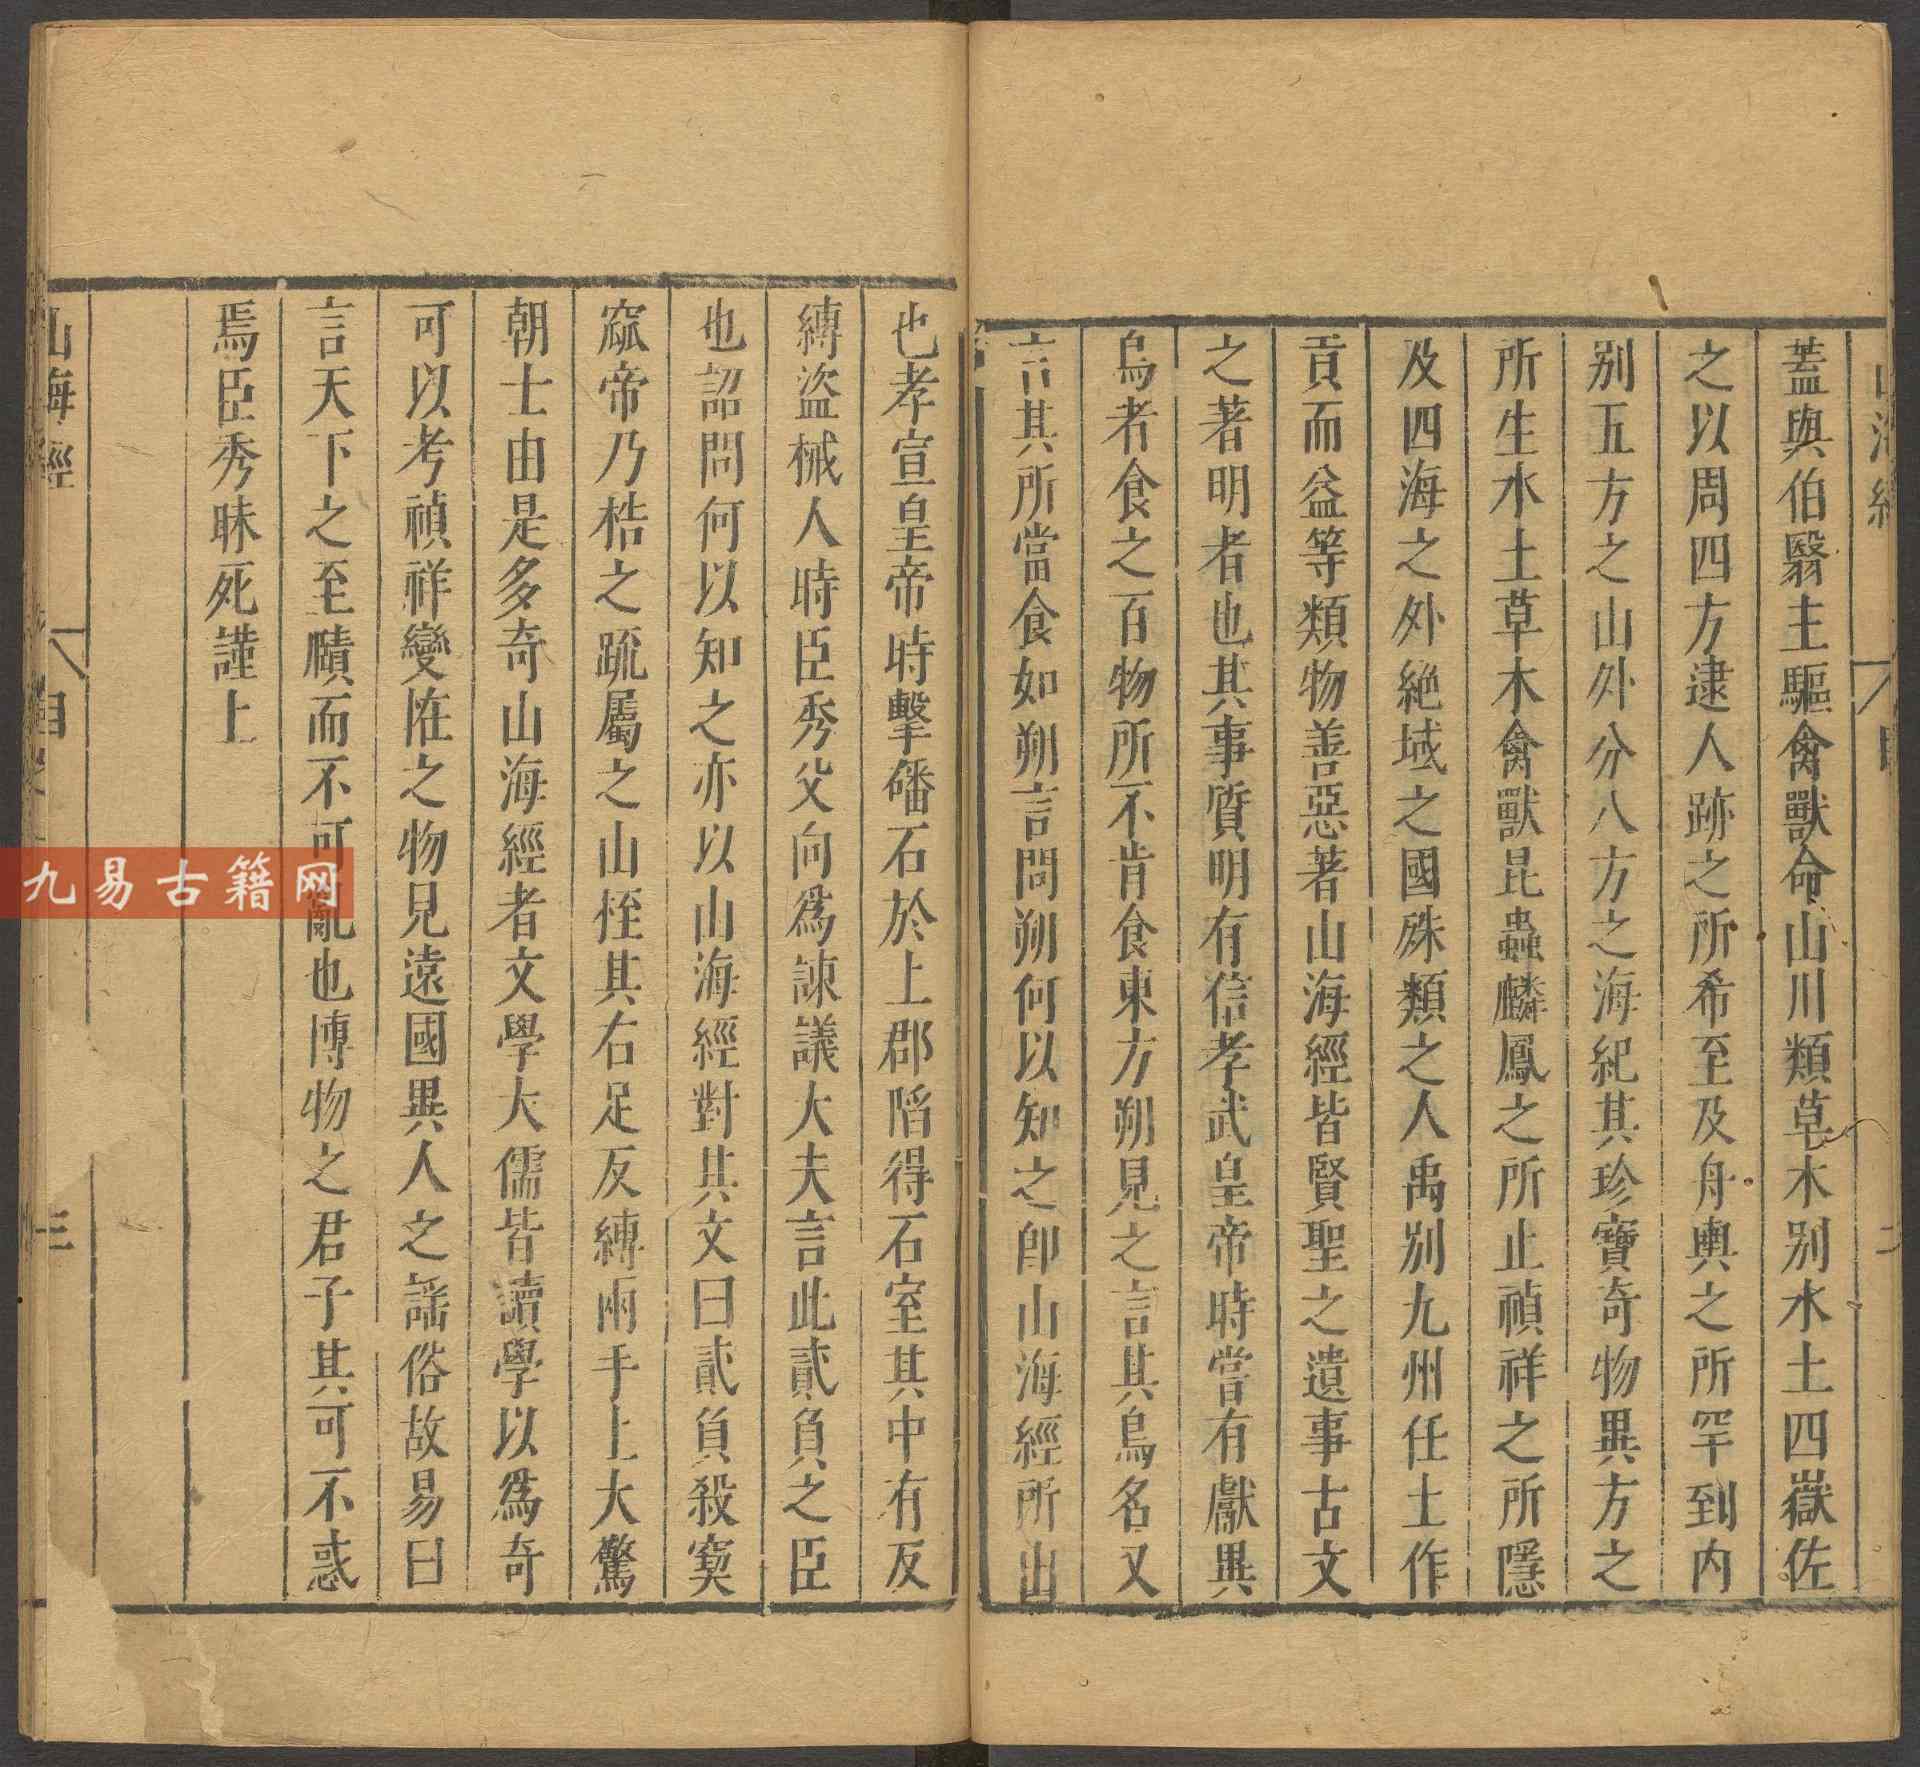 蓋與伯翳主驅禽獸命山川類草木別水土四嶽佐
之以周四方逮人跡之所希至及舟輿之所罕到內
別五方之山外分八方之海紀其珍寶奇物異方之
所生水土草木禽獸昆蟲麟鳳之所止禎祥之所隱
及四海之外絶域之國殊類之人禹別九州任土作
貢而益等類物善惡著山海經皆賢聖之遺事古文
之著明者也其事質明有信孝武皇帝時嘗有獻異
鳥者食之百物所不肯食東方朔見之言其鳥名又
言其所當食如朔言問朔何以知之卽山海經所出
也孝宣皇帝時擊磻石於上郡陷得石室其中有反
縛盜械人時臣秀父向爲諫議大夫言此貳負之臣
也詔問何以知之亦以山海經對其文曰貳負殺窫
窳帝乃梏之疏屬之山桎其右足反縛兩手上大驚
朝士由是多奇山海經者文學大儒皆讀學以爲奇
可以考禎祥變恠之物見遠國異人之謡俗故易曰
言天下之至賾而不可亂也博物之君子其可不惑
焉臣秀昧死謹上
山海經 目 三
九易古籍网